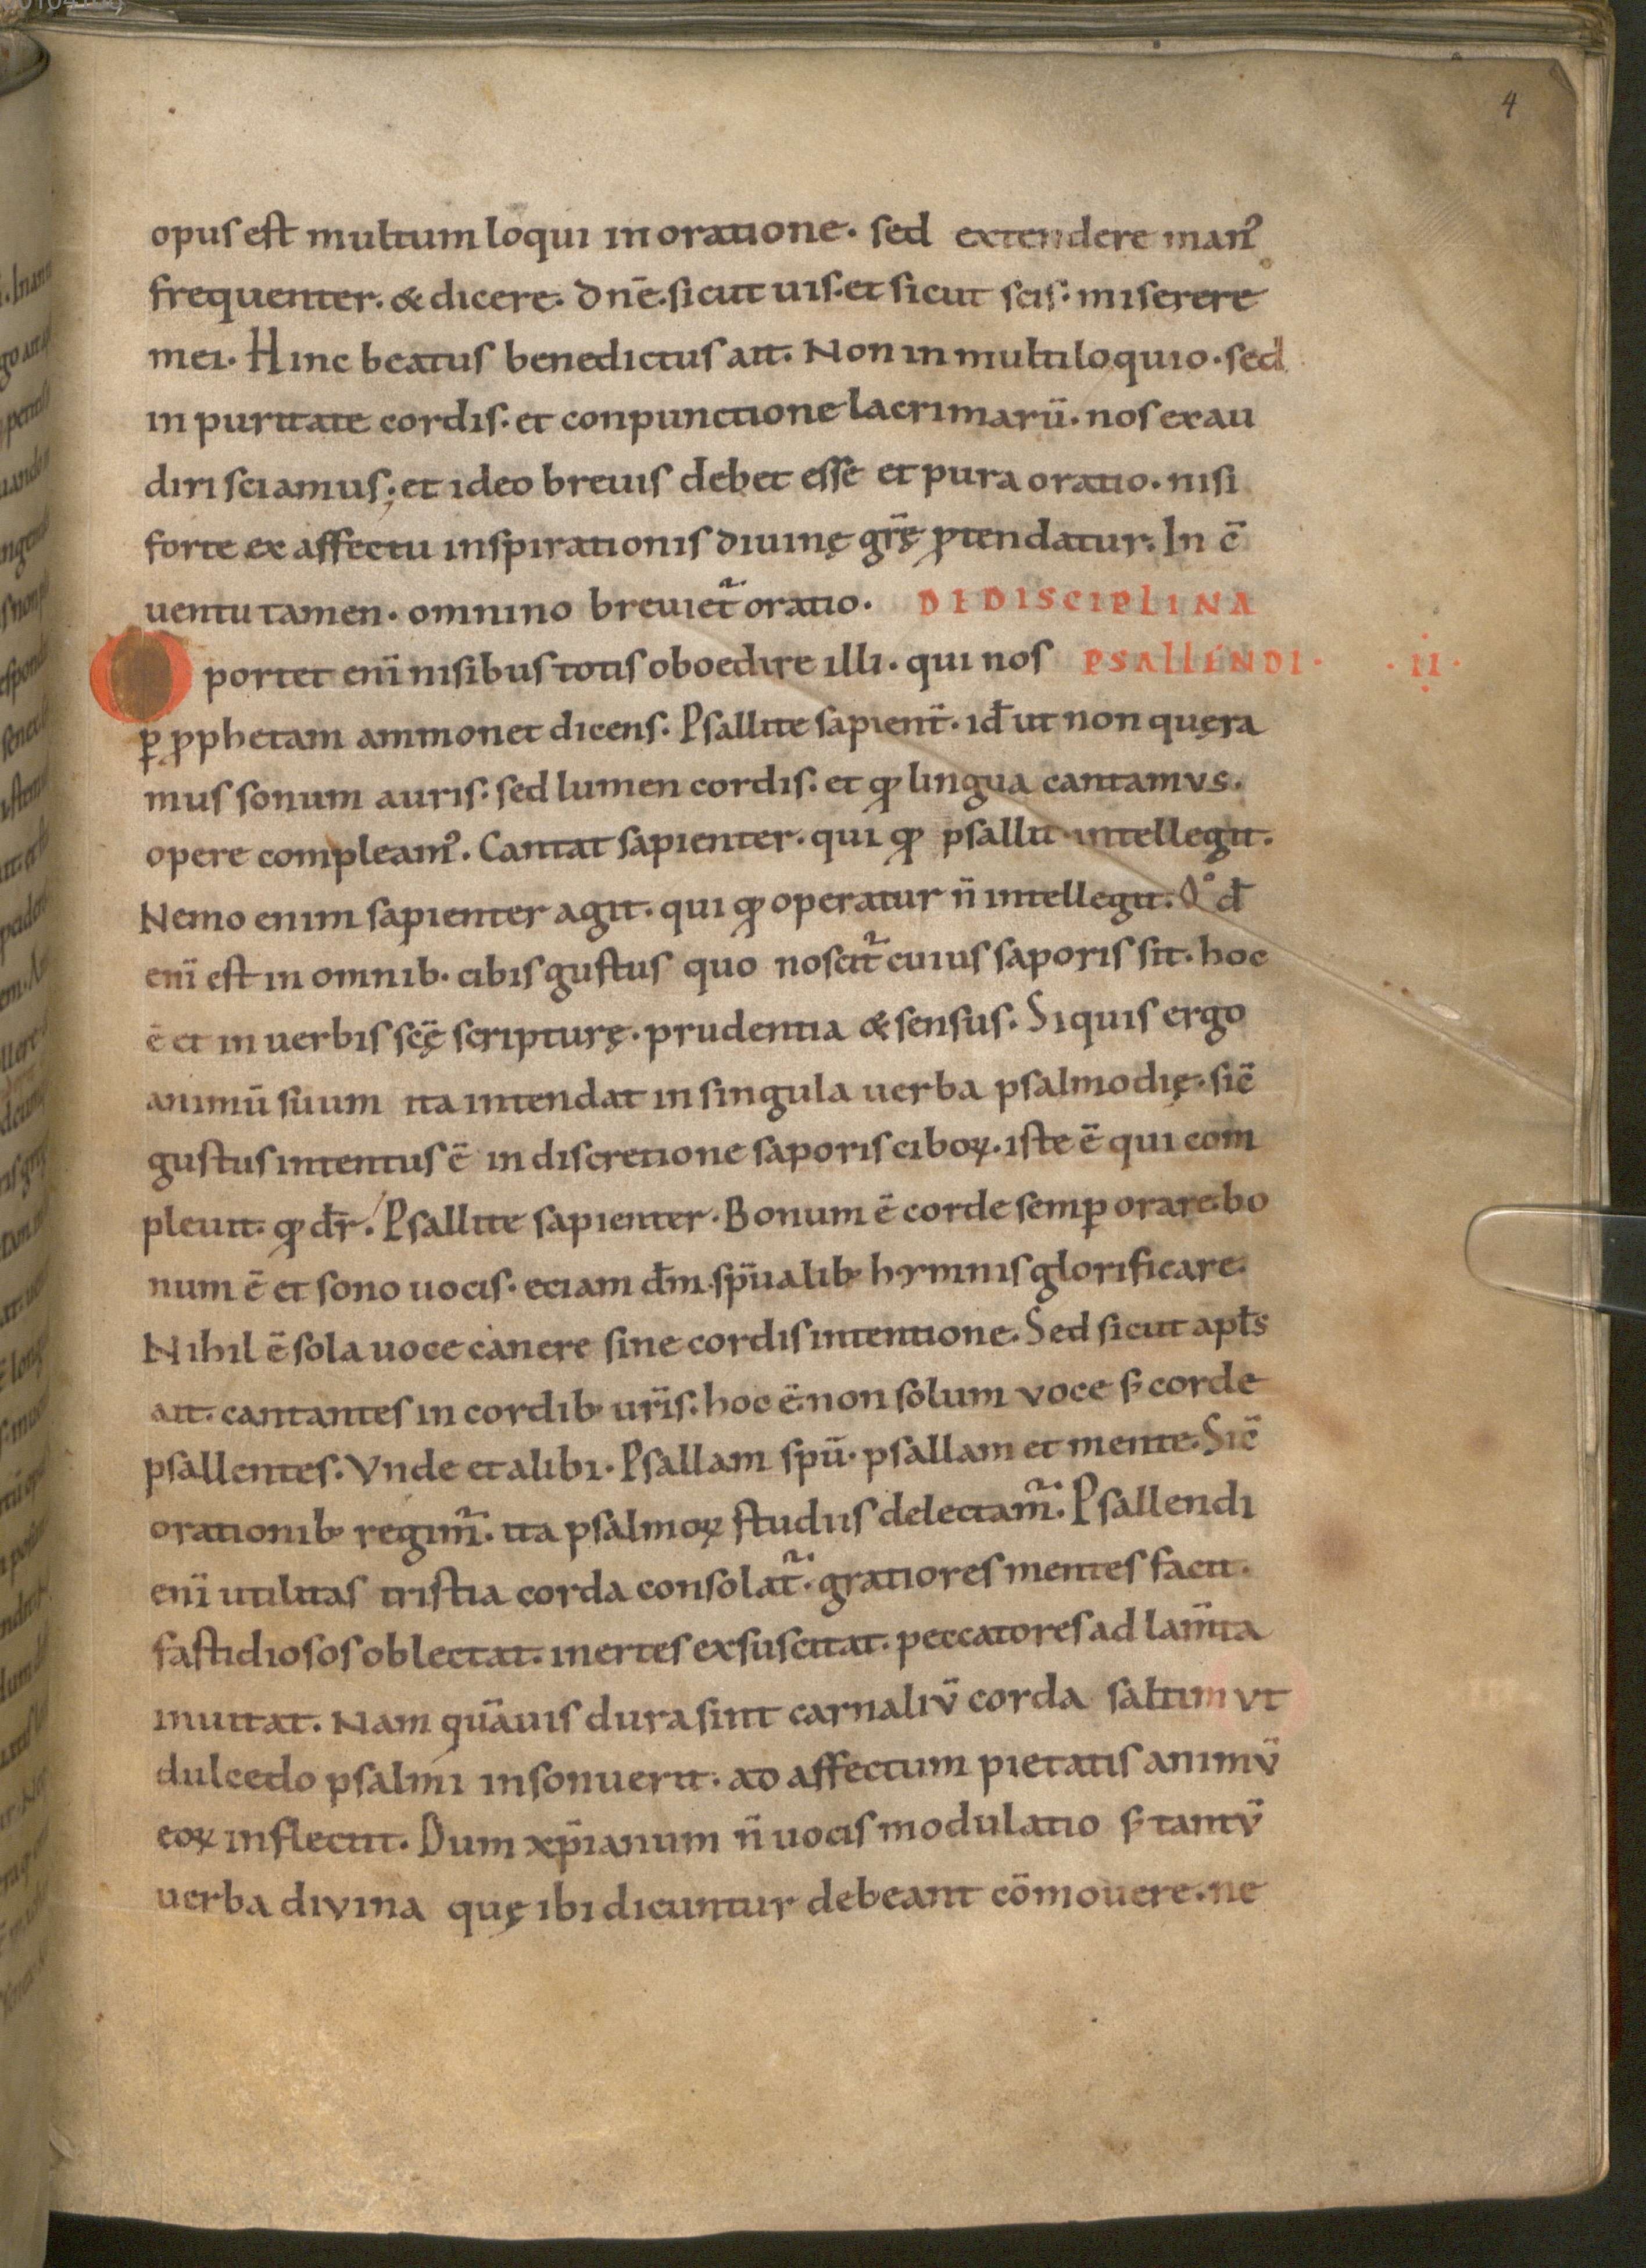 4
opus est multum loqui in oratione. sed extendere man᾽
frequenter. & dicere. dn̄e. sicut uis. et sicut scis. miserere
mei. Hinc beatus benedictus ait. Non in multiloquio. sed
in puritate cordis. et conpunctione lacrimarū. nos exau
diri sciamus; et ideo breuis debet esse et pura oratio. nisi
forte ex affectu inspirationis diuinę gr̄ę ꝓtendatur. In c̄
uentu tamen. omnino breuiet᷑ oratio. DE DISCIPLINA
Oportet enī nisibus totis oboedire illi. qui nos PSALLENDI. .II.
ꝑ ꝓphetam ammonet dicens. Psallite sapient̄. id̄ ut non quęra
mus sonum auris. sed lumen cordis. et qđ lingua cantamus.
opere compleam᾽. Cantat sapienter. qui qđ psallit intellegit.
Nemo enim sapienter agit. qui qđ operatur n̄ intellegit. Q°d̄
enī est in omnib. cibis gustus quo noscit᷑ cuius saporis sit. hoc
ē et in uerbis scę̄ scripturę. prudentia & sensus. Si quis ergo
animū suum ita intendat in singula uerba psalmodię. sic̄
gustus intentus ē in discretione saporis ciboꝝ. iste ē qui com
pleuit. qđ dr̄. Psallite sapienter. Bonum ē corde semꝑ orare. bo
num ē et sono uocis. eciam dm̄ spūalib; hymnis glorificare.
Nihil ē sola uoce canere sine cordis intentione. Sed sicut apl̄s
ait. cantantes in cordib; ur̄is. hoc ē. non solum voce s; corde
psallentes. Vnde et alibi. Psallam spū. psallam et mente. Sic̄
orationib; regim᷑. ita psalmoꝝ studiis delectam᷑. Psallendi
enī utilitas tristia corda consolat᷑. gratiores mentes facit.
fastidiosos oblectat. inertes exsuscitat. peccatores ad lam̄ta
inuitat. Nam quāuis dura sint carnaliū corda saltim ut
dulcedo psalmi insonuerit. ad affectum pietatis animū
eoꝝ inflectit. Dum xp̄ianum n̄ uocis modulatio s; tantū
uerba diuina quę ibi dicuntur debeant cōmouere. ne